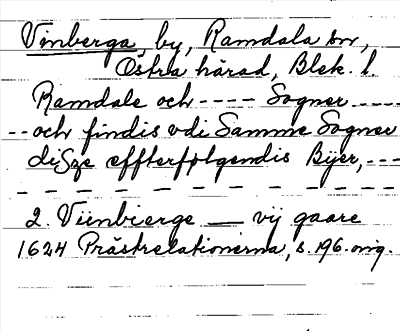 Vinberga, by, Ramdala sn,
Östra härad, Blek. l.
Ramdale och ---- Sogner ----
-- och findis vdi Samme Sogner
disze effterfølgendis Bÿer, ---
2. Viinbierge — vij gaare
1624 Prästrelationerna, s. 196. omg.